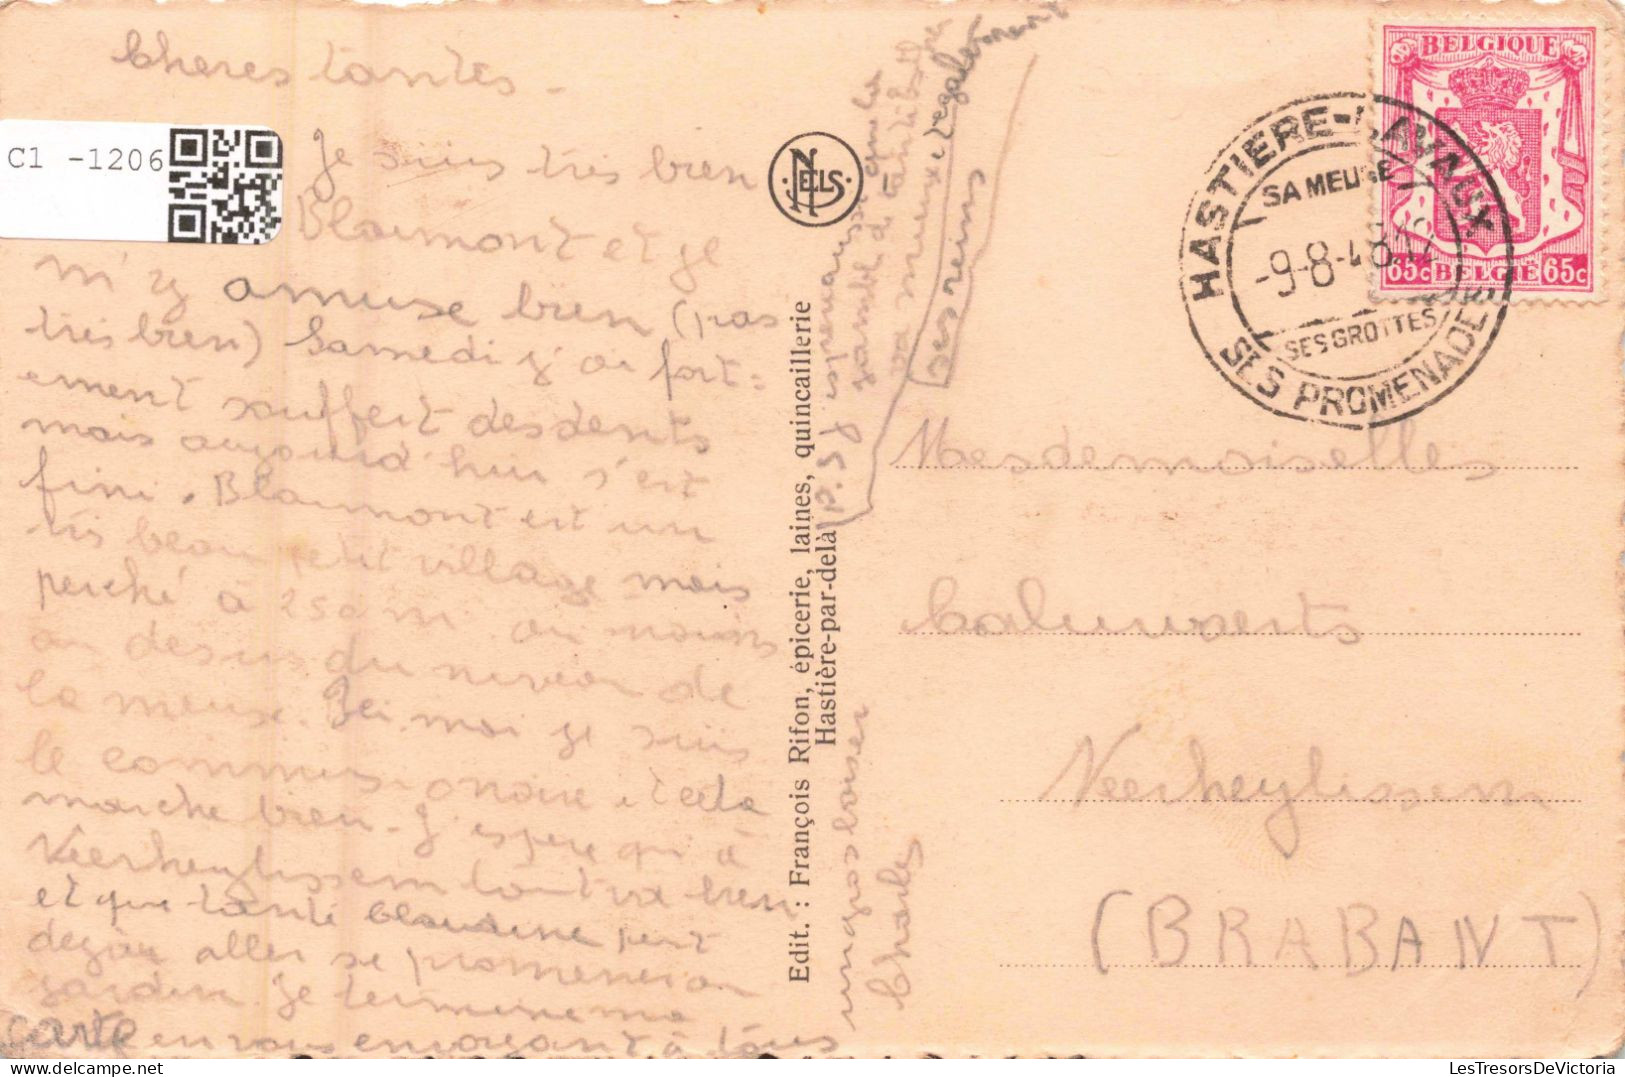 Cheres tantes -
C1 -1206
Je suis très bien
Blaimont et je
m'y amuse bien (pas
très bien) Samedi j'ai fort=
ement souffert des dents
mais aujourd'hui s'est
fini. Blaimont est un
très beau petit village mais
perché à 250 m. au moins
au dessus du niveau de
la meuse. Ici moi je suis
le commissionaire et cela
marche bien. J'espère qui à
Neerheylissem tout va bien
et que tante Claudine peut
déjà aller se promener au
jardin. Je termine ma
carte en vous envoyant à tous
un gros baiser
Charles
P.S. J'espère aussi que la
jambe de tante
va mieux et également
ses reins
NELS
Edit. : François Rifon, épicerie, laines, quincaillerie
Hastière-par-delà
BELGIQUE
65c BELGIE 65c
HASTIERE-LAVAUX
SA MEUSE
-9-8-48.12
SES GROTTES
SES PROMENADES
Mesdemoiselles
Caluwaerts
Neerheylissem
(BRABANT)
LesTresorsDeVictoria